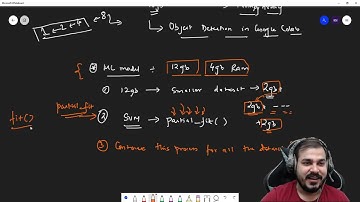 1 - 2 - 4 - 8g
Object Detection in Google Colab
ML model ÷ 12gb 4gb Ram
① 12gb → smaller dataset → 2gb
2gb
partial_fit
fit()
② SVM → partial_fit()
12gb
③ Continue this process for all the datasets